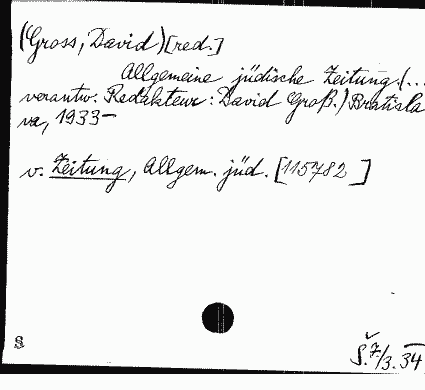 (Gross, David)[red.]
Allgemeine jüdische Zeitung. (...
verantw. Redakteur: David Groß.) Bratisla
va, 1933-
v. Zeitung, Allgem. jüd. [115782]
S
Š. 7/3. 34